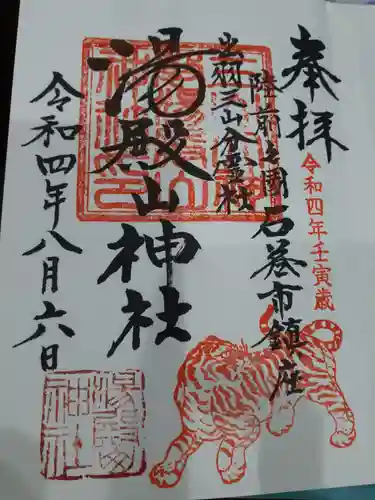 奉拝
令和四年壬寅歳
陸前之國 石巻市鎮座
出羽三山分霊社
湯殿山神社
令和四年八月六日
湯殿神社